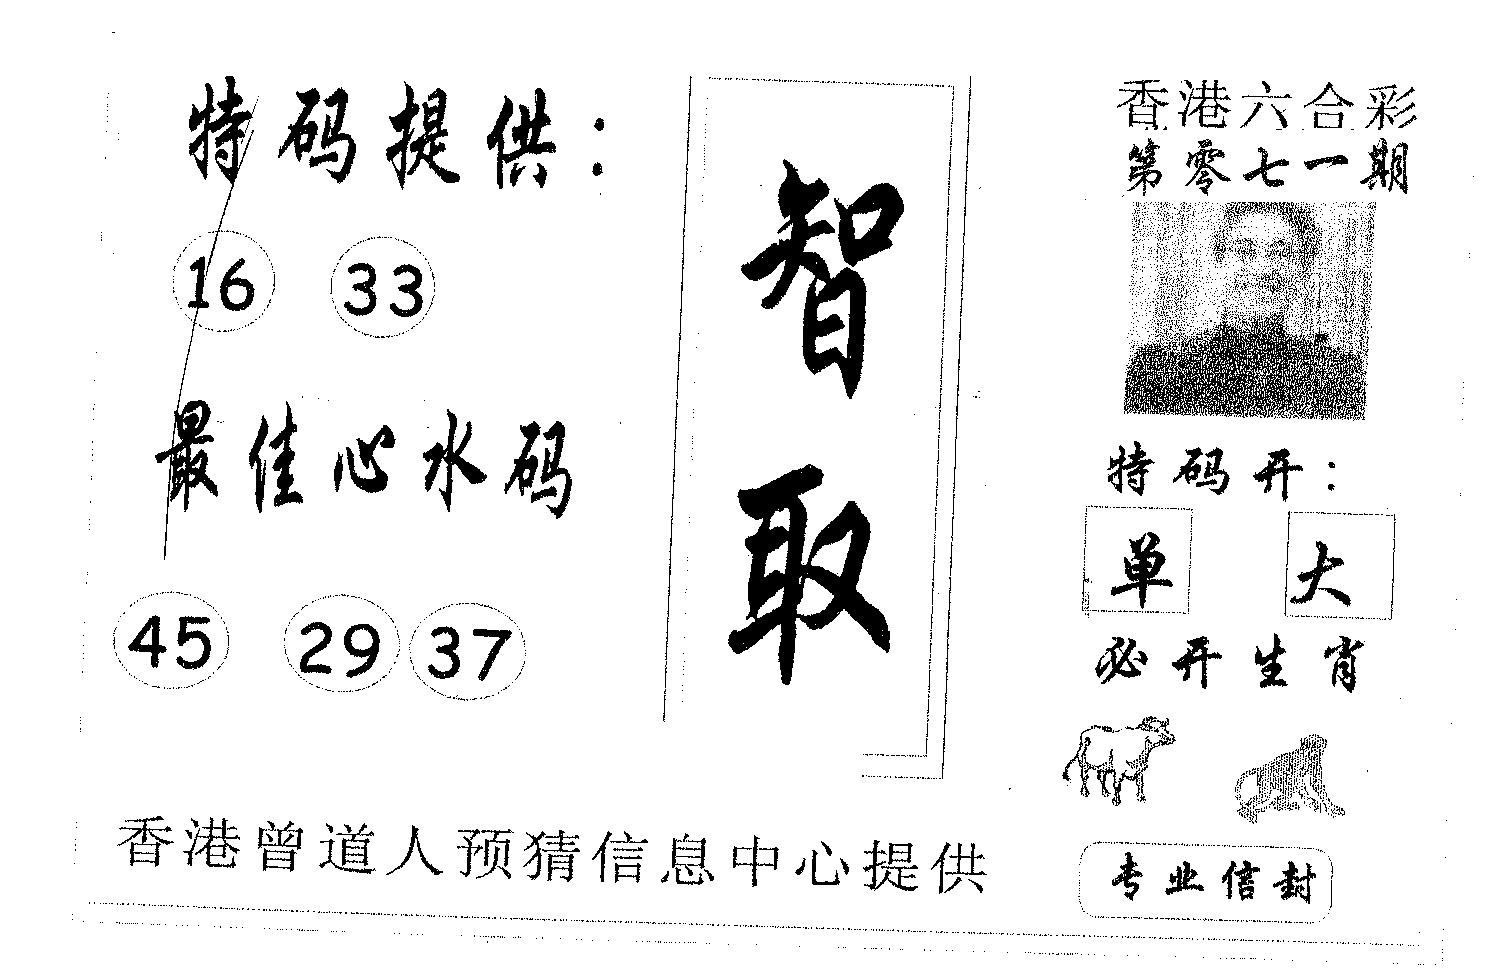 特码提供：
16 33
最佳心水码
45 29 37
智
取
香港六合彩
第零七一期
特码开：
单 大
必开生肖
专业信封
香港曾道人预猜信息中心提供